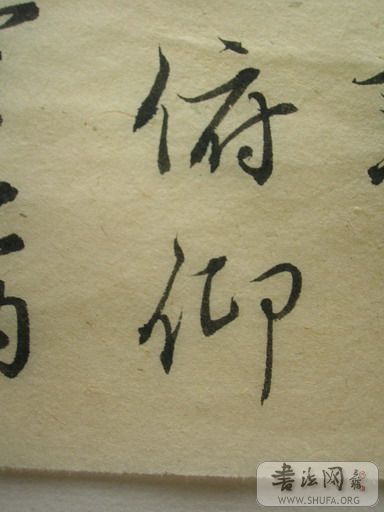 俯仰
书法网
WWW.SHUFA.ORG